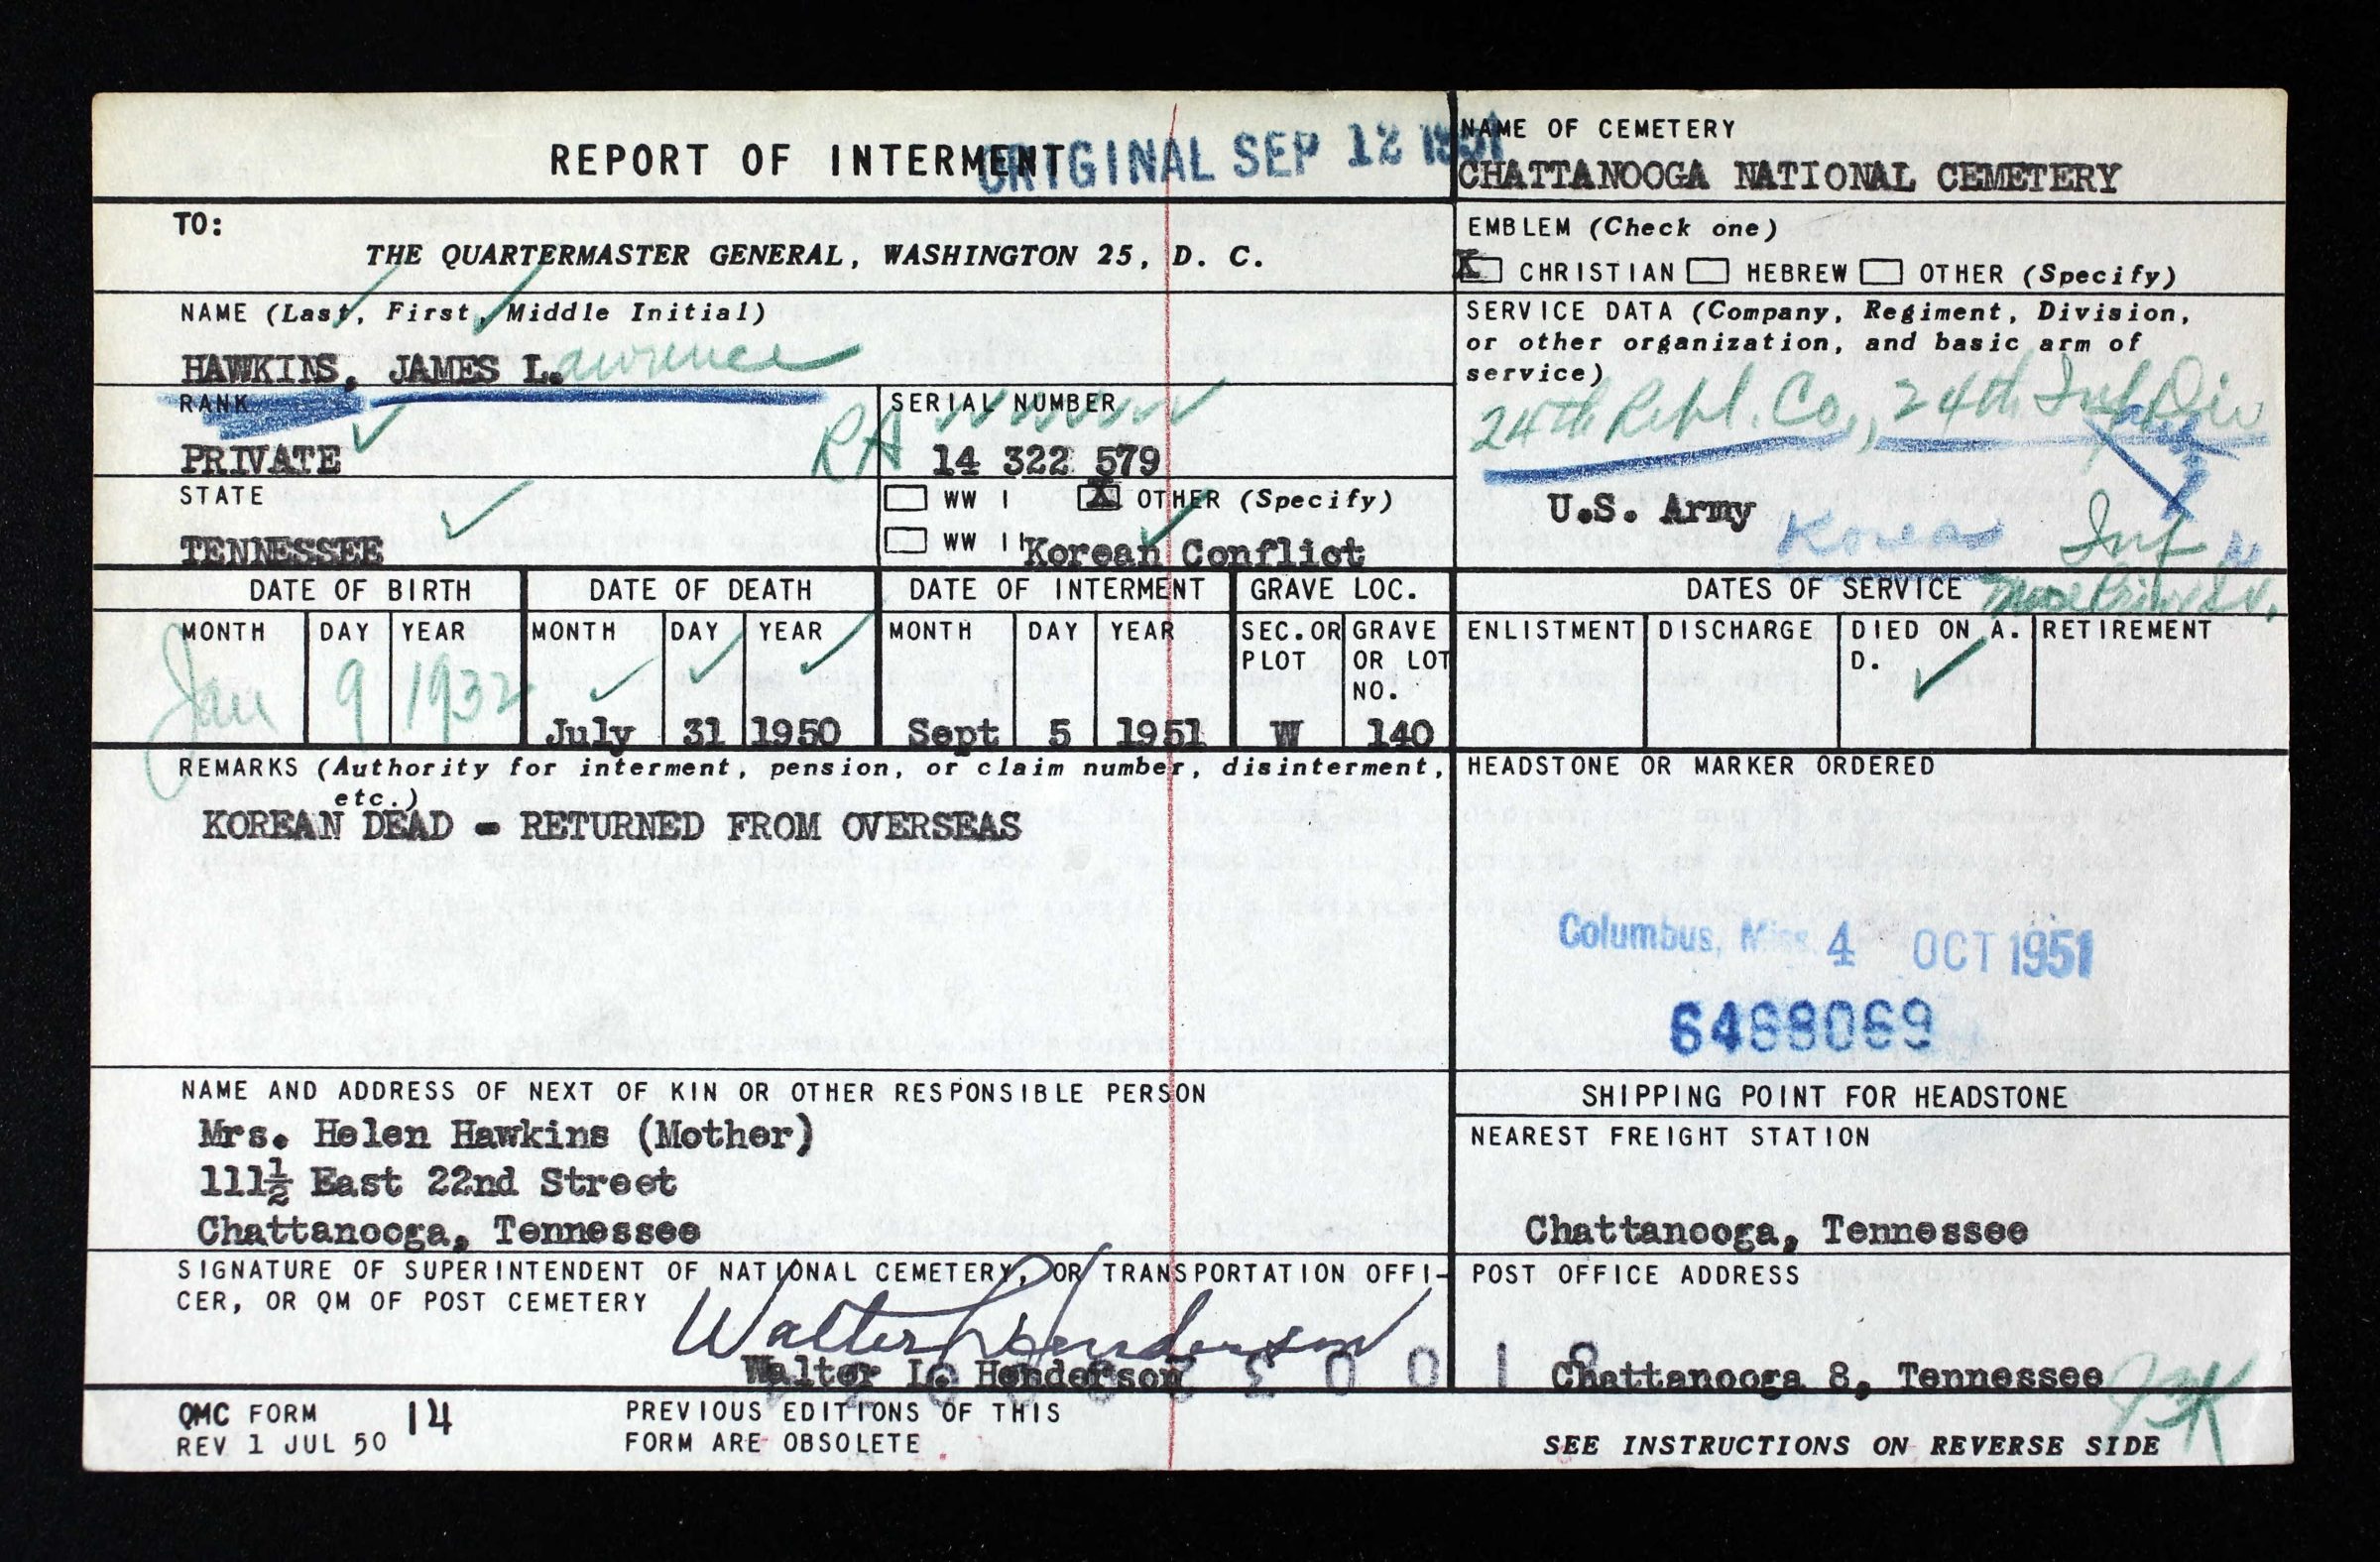 REPORT OF INTERMENT
ORIGINAL SEP 12 1951
NAME OF CEMETERY
CHATTANOOGA NATIONAL CEMETERY
TO:
THE QUARTERMASTER GENERAL, WASHINGTON 25, D. C.
EMBLEM (Check one)
X CHRISTIAN HEBREW OTHER (Specify)
NAME (Last, First, Middle Initial)
HAWKINS, JAMES L.awrence
SERVICE DATA (Company, Regiment, Division,
or other organization, and basic arm of
service)
24th Repl. Co., 24th Inf Div
U.S. Army
Korea Inf
RANK
PRIVATE
SERIAL NUMBER
RA 14 322 579
STATE
TENNESSEE
WW I X OTHER (Specify)
WW II Korean Conflict
DATE OF BIRTH
MONTH DAY YEAR
Jan 9 1932
DATE OF DEATH
MONTH DAY YEAR
July 31 1950
DATE OF INTERMENT
MONTH DAY YEAR
Sept 5 1951
GRAVE LOC.
SEC. OR PLOT
GRAVE OR LOT NO.
W 140
DATES OF SERVICE
ENLISTMENT DISCHARGE DIED ON A. D. RETIREMENT
REMARKS (Authority for interment, pension, or claim number, disinterment,
etc.)
KOREAN DEAD - RETURNED FROM OVERSEAS
HEADSTONE OR MARKER ORDERED
Columbus, Miss. 4 OCT 1951
NAME AND ADDRESS OF NEXT OF KIN OR OTHER RESPONSIBLE PERSON
Mrs. Helen Hawkins (Mother)
111½ East 22nd Street
Chattanooga, Tennessee
SHIPPING POINT FOR HEADSTONE
NEAREST FREIGHT STATION
Chattanooga, Tennessee
SIGNATURE OF SUPERINTENDENT OF NATIONAL CEMETERY, OR TRANSPORTATION OFFI-
CER, OR QM OF POST CEMETERY
Walter L. Henderson
Walter L. Henderson
POST OFFICE ADDRESS
Chattanooga 8, Tennessee
QMC FORM 14
REV 1 JUL 50
PREVIOUS EDITIONS OF THIS
FORM ARE OBSOLETE
SEE INSTRUCTIONS ON REVERSE SIDE